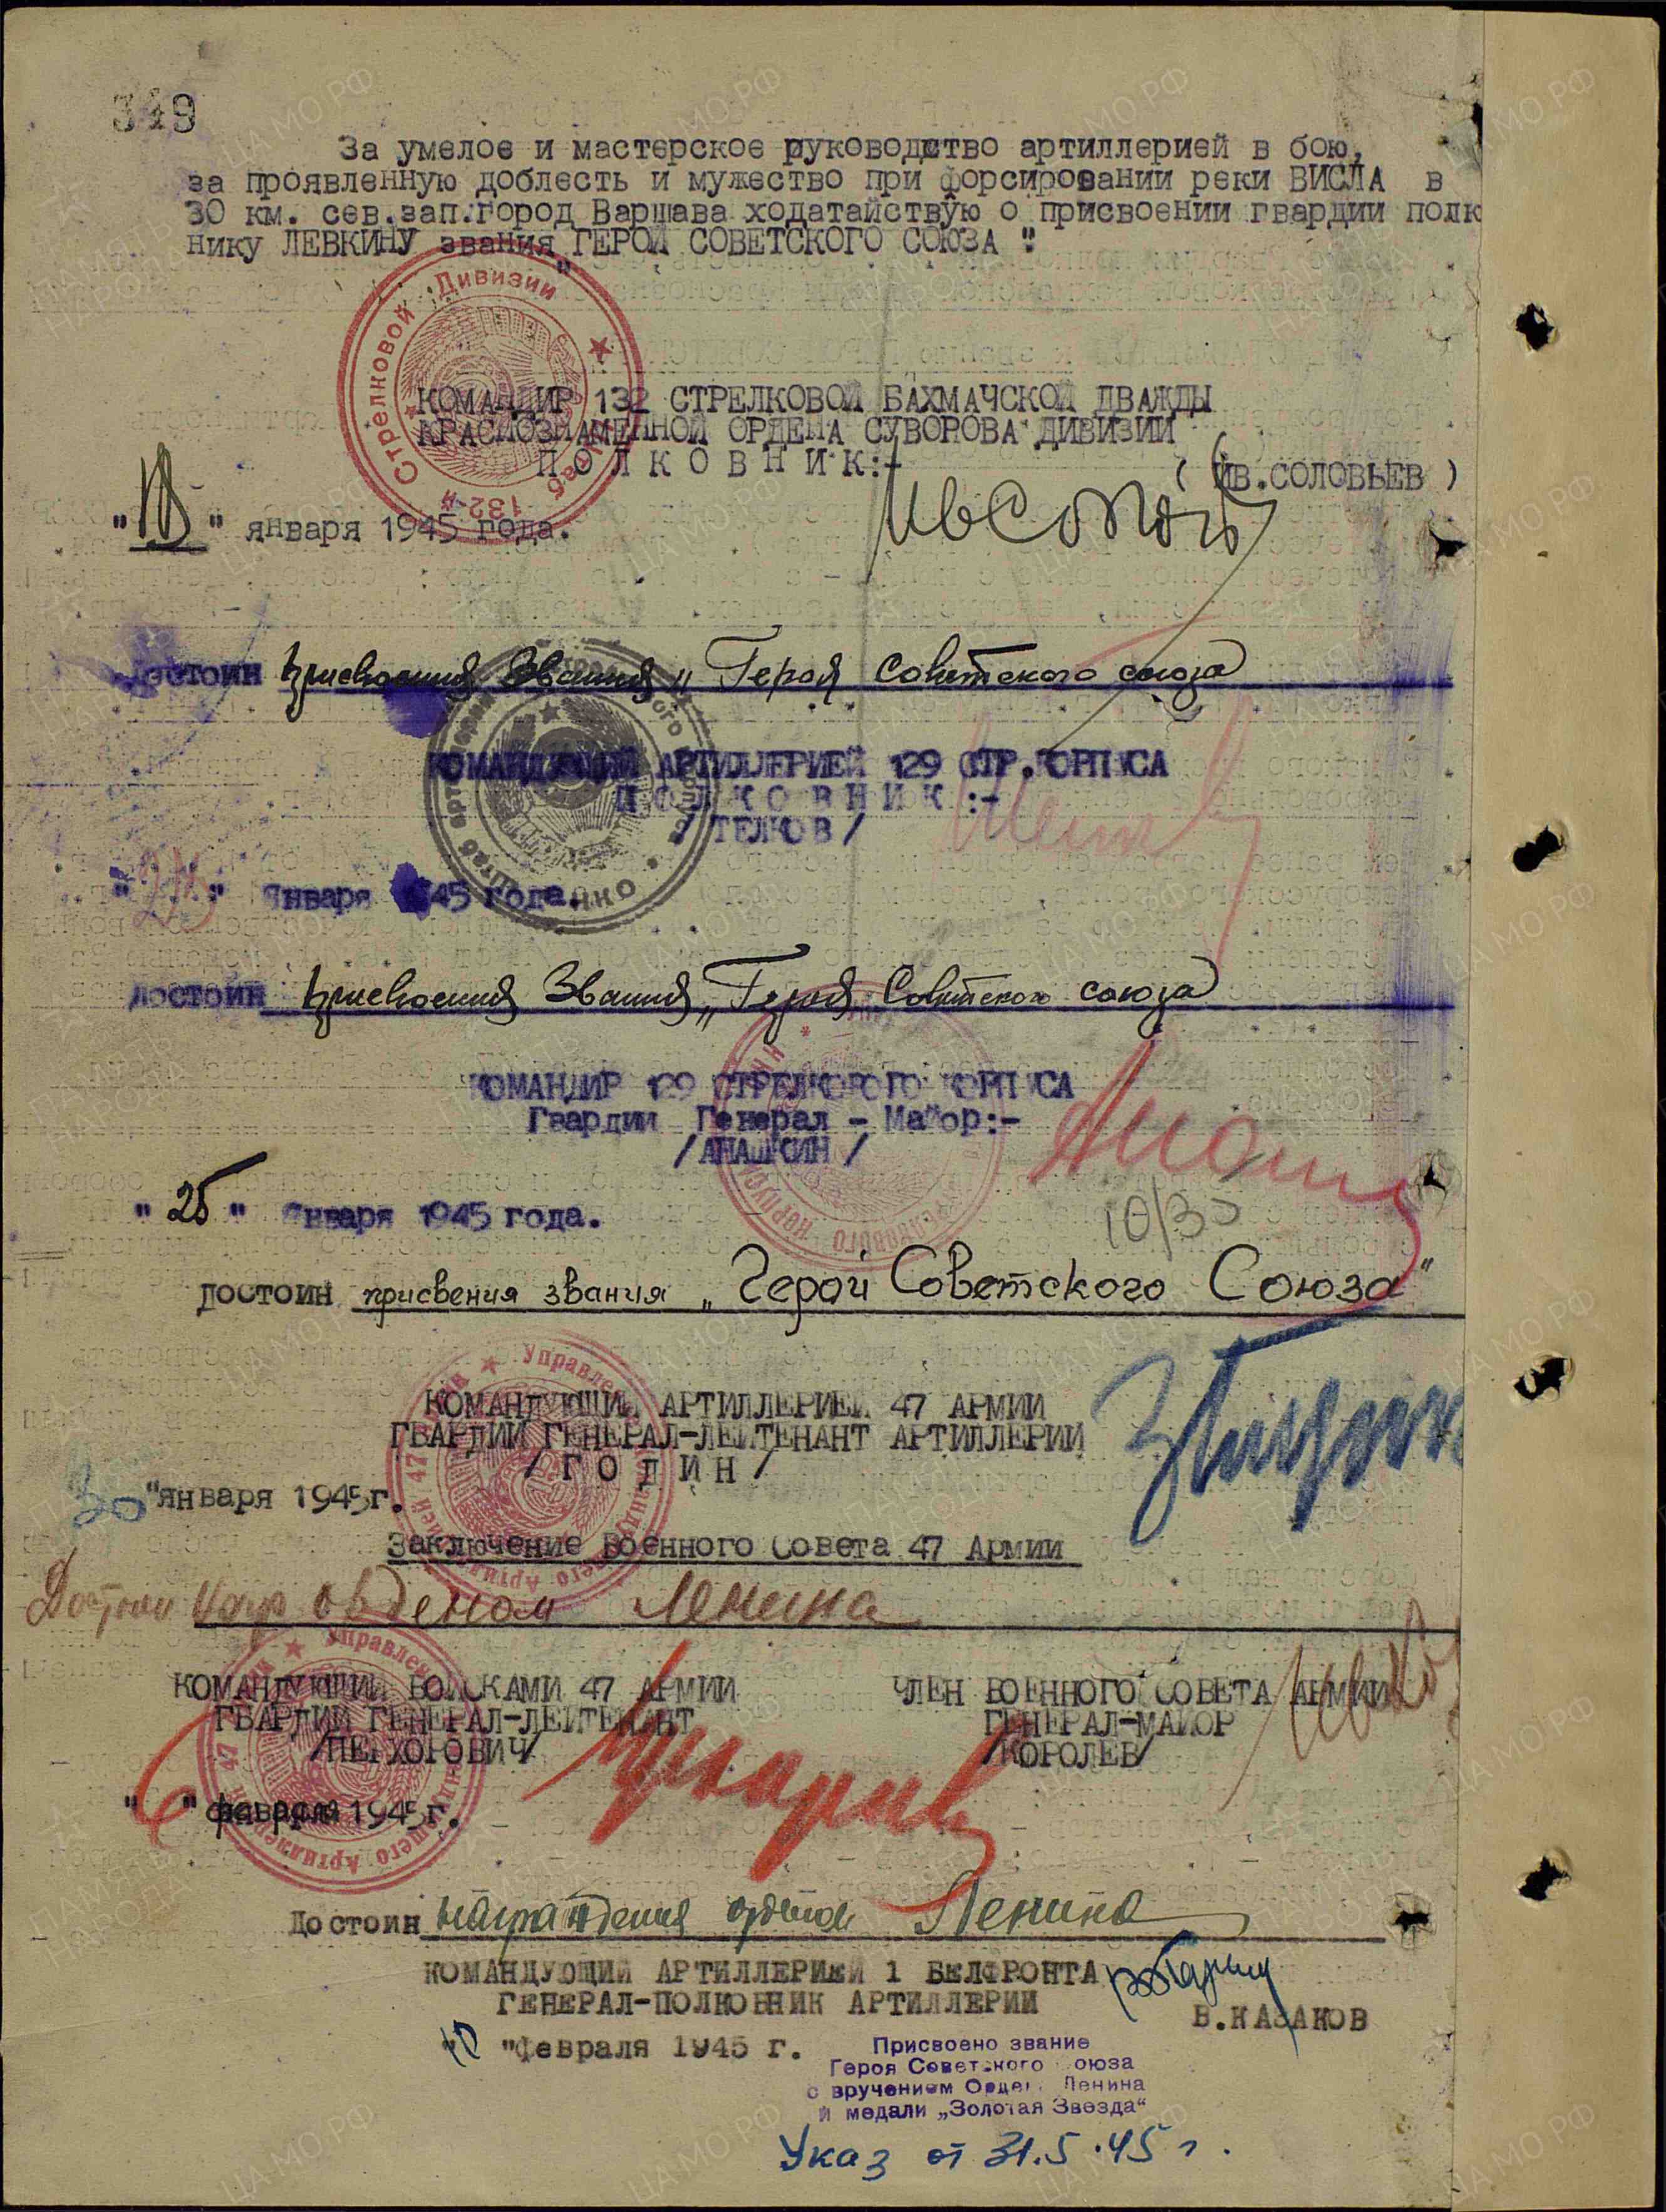 349
За умелое и мастерское руководство артиллерией в бою,
за проявленную доблесть и мужество при форсировании реки ВИСЛА в
30 км. сев.зап.город Варшава ходатайствую о присвоении гвардии полк
нику ЛЕВКИНУ звания „ГЕРОЙ СОВЕТСКОГО СОЮЗА ".
КОМАНДИР 132 СТРЕЛКОВОЙ БАХМАЧСКОЙ ДВАЖДЫ
КРАСНОЗНАМЕННОЙ ОРДЕНА СУВОРОВА ДИВИЗИИ
П О Л К О В Н И К :-
( ИВ.СОЛОВЬЕВ )
" " января 1945 года.
Штаб 132-й Стрелковой Дивизии
достоин присвоения звания „Героя Советского союза
КОМАНДУЮЩИЙ АРТИЛЛЕРИЕЙ 129 СТР.КОРПУСА
П О Л К О В Н И К :-
/ТЕЛКОВ/
" " Января 1945 года.
достоин присвоения звания „Героя Советского союза
КОМАНДИР 129 СТРЕЛКОВОГО КОРПУСА
Гвардии Генерал - Майор:-
/АНАШКИН/
" 25 " Января 1945 года.
10/3
достоин присвения звания „Герой Советского Союза"
КОМАНДУЮЩИЙ АРТИЛЛЕРИЕЙ 47 АРМИИ
ГВАРДИИ ГЕНЕРАЛ-ЛЕЙТЕНАНТ АРТИЛЛЕРИИ
/ Г О Д И Н /
30 "января 1945г.
Заключение Военного Совета 47 Армии
Достоин нагр орденом Ленина
КОМАНДУЮЩИЙ ВОЙСКАМИ 47 АРМИИ
ГВАРДИИ ГЕНЕРАЛ-ЛЕЙТЕНАНТ
/ПЕРХОРОВИЧ/
ЧЛЕН ВОЕННОГО СОВЕТА АРМИИ
ГЕНЕРАЛ-МАЙОР
/КОРОЛЕВ/
"6" февраля 1945г.
Достоин награждения орденом Ленина
КОМАНДУЮЩИЙ АРТИЛЛЕРИЕЙ 1 БЕЛФРОНТА
ГЕНЕРАЛ-ПОЛКОВНИК АРТИЛЛЕРИИ
В.КАЗАКОВ
"февраля 1945 г.
Присвоено звание
Героя Советского Союза
с вручением Ордена Ленина
и медали „Золотая Звезда"
Указ от 31.5.45 г.